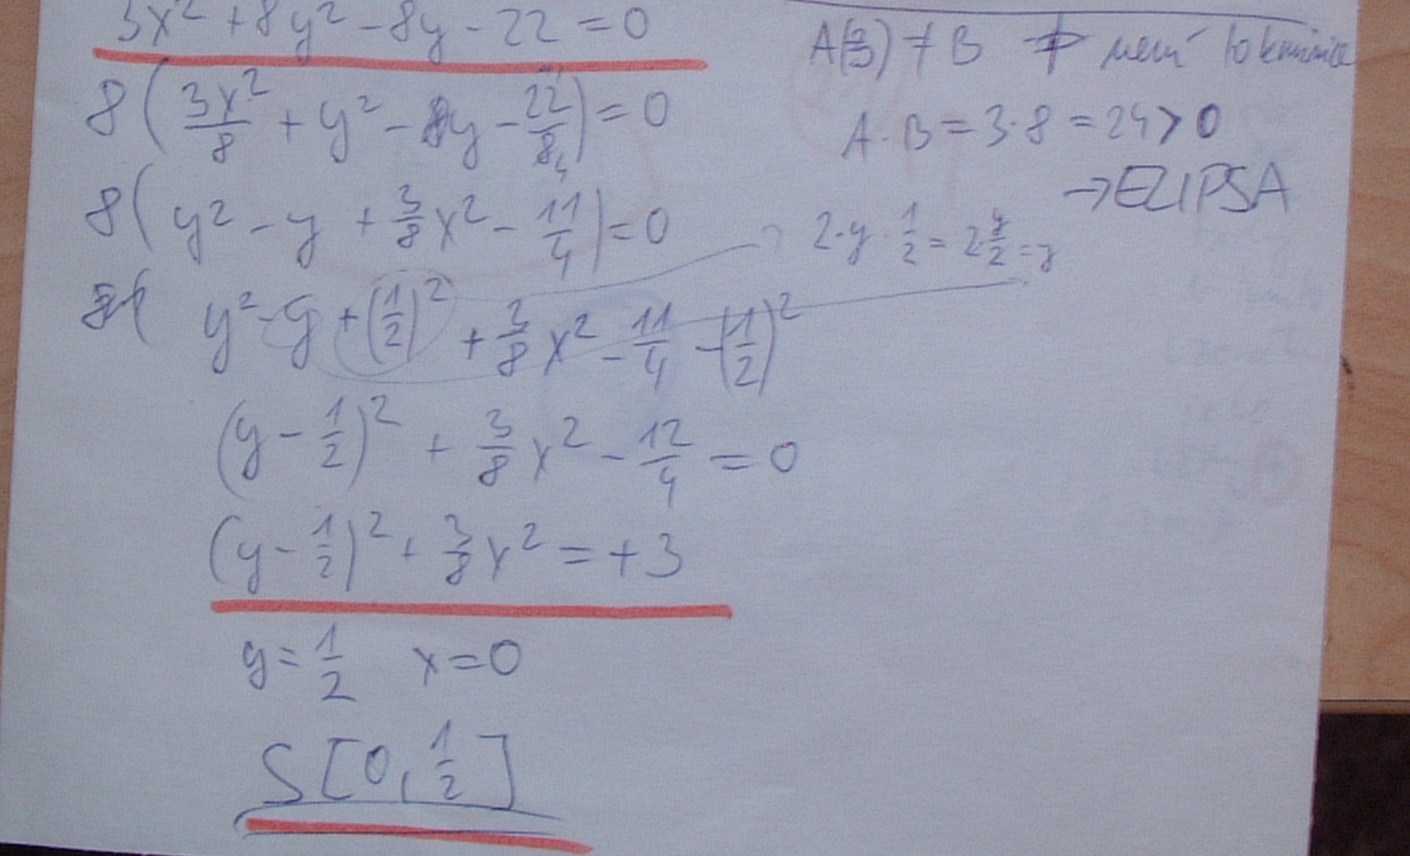 3x² + 8y² - 8y - 22 = 0
8(3x²/8 + y² - y - 22/8) = 0
8(y² - y + 3/8 x² - 11/4) = 0
8( y² - y + (1/2)² + 3/8 x² - 11/4 - (1/2)²
(y - 1/2)² + 3/8 x² - 12/4 = 0
(y - 1/2)² + 3/8 x² = +3
y = 1/2 x = 0
S[0, 1/2]
A(3) ≠ B není to kružnice
A · B = 3·8 = 24 > 0
→ ELIPSA
2·y·1/2 = 2 y/2 = y